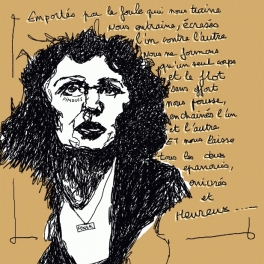 Emportés par la foule qui nous traîne
Nous entraîne, écrasés
l'un contre l'autre
Nous ne formons
qu'un seul corps
et le flot
sans effort
nous pousse,
enchaînés l'un
et l'autre
ET nous laisse
tous les deux
épanouis,
enivrés
et
Heureux